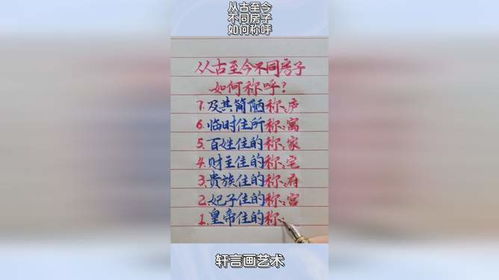 从古至今
不同房子
如何称呼
从古至今不同房子
如何称呼?
7.及其简陋称:庐
6.临时住所称:寓
5.百姓住的称:家
4.财主住的称:宅
3.贵族住的称:府
2.妃子住的称:宫
1.皇帝住的称:
轩言画艺术